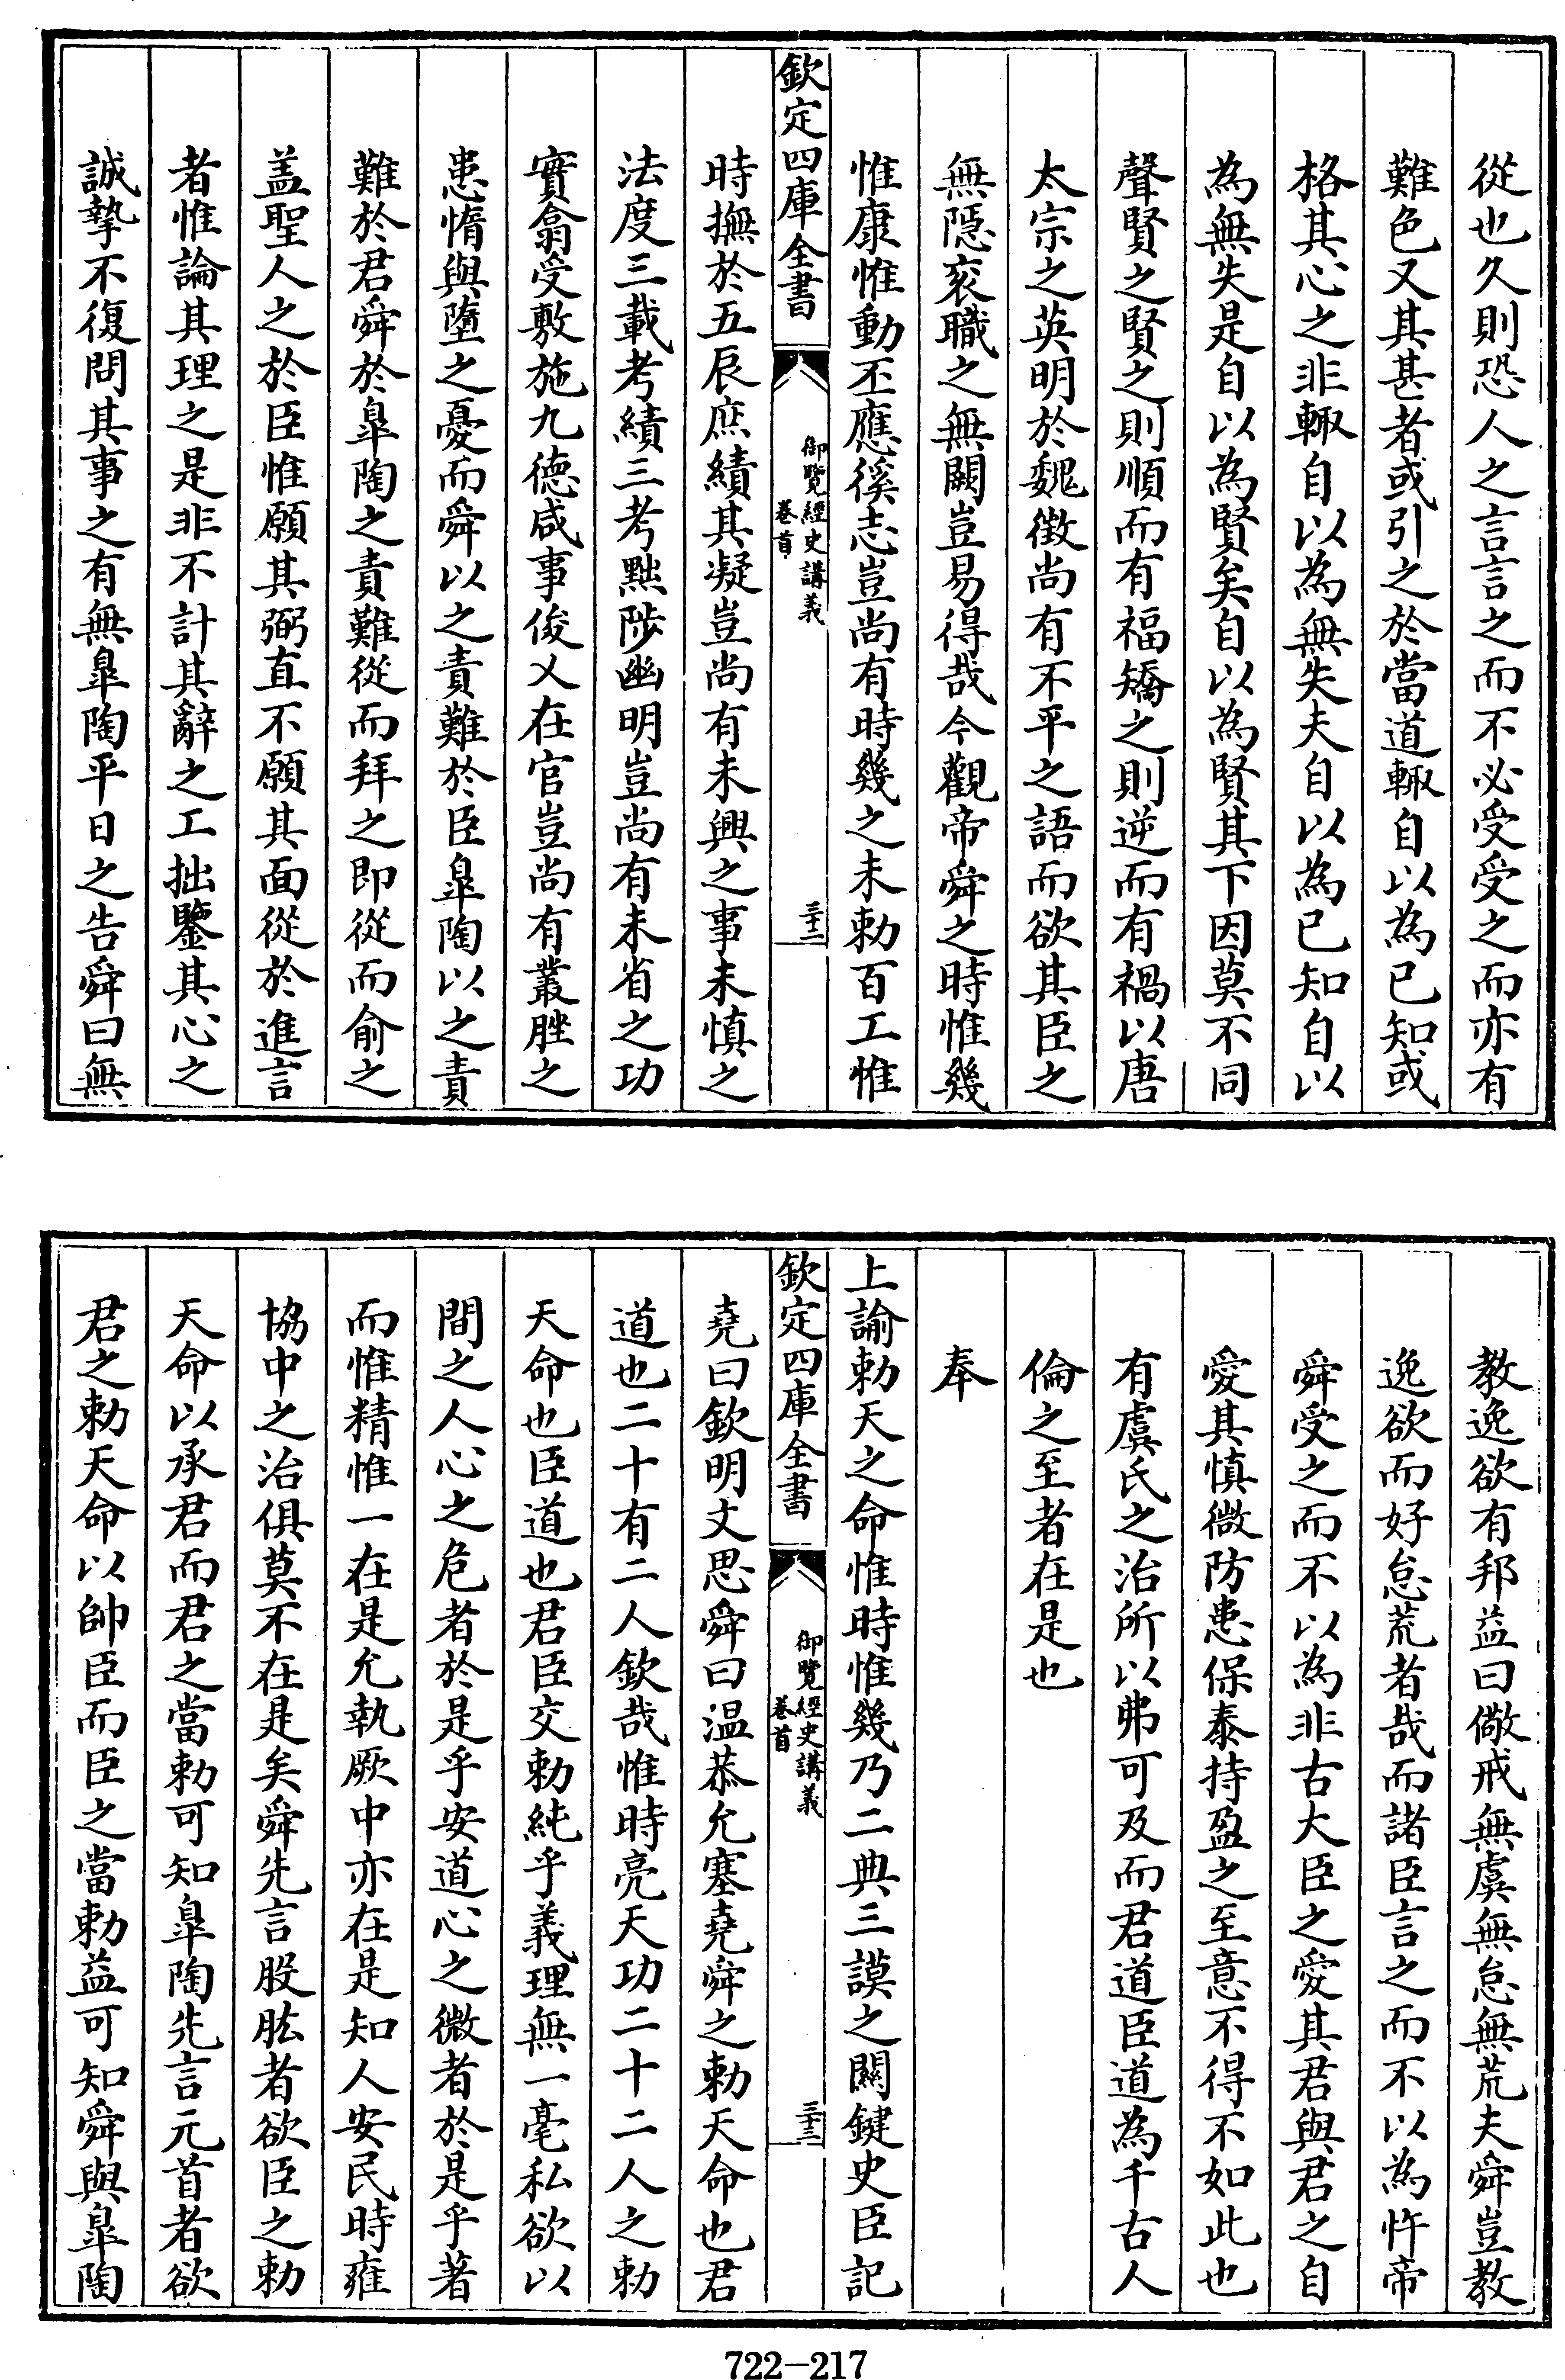 從也久則恐人之言言之而不必受受之而亦有
難色又其甚者或引之於當道輙自以為已知或
格其心之非輙自以為無失夫自以為已知自以
為無失是自以為賢矣自以為賢其下因莫不同
聲賢之賢之則順而有福矯之則逆而有禍以唐
太宗之英明於魏徴尚有不平之語而欲其臣之
無隱衮職之無闕豈易得哉今觀帝舜之時惟幾
惟康惟動丕應徯志豈尚有時幾之未勅百工惟
欽定四庫全書
御覽經史講義
卷首
三十二
時撫於五辰庶績其凝豈尚有未興之事未慎之
法度三載考績三考黜陟幽明豈尚有未省之功
實翕受敷施九德咸事俊乂在官豈尚有叢脞之
患惰與墮之憂而舜以之責難於臣臯陶以之責
難於君舜於臯陶之責難從而拜之即從而俞之
盖聖人之於臣惟願其弼直不願其面從於進言
者惟論其理之是非不計其辭之工拙鑒其心之
誠摯不復問其事之有無臯陶平日之告舜曰無
教逸欲有邦益曰儆戒無虞無怠無荒夫舜豈教
逸欲而好怠荒者哉而諸臣言之而不以為忤帝
舜受之而不以為非古大臣之愛其君與君之自
愛其慎微防患保泰持盈之至意不得不如此也
有虞氏之治所以弗可及而君道臣道為千古人
倫之至者在是也
奉
上諭勅天之命惟時惟幾乃二典三謨之關鍵史臣記
欽定四庫全書
御覽經史講義
卷首
三十三
堯曰欽明文思舜曰温恭允塞堯舜之勅天命也君
道也二十有二人欽哉惟時亮天功二十二人之勅
天命也臣道也君臣交勅純乎義理無一毫私欲以
間之人心之危者於是乎安道心之微者於是乎著
而惟精惟一在是允執厥中亦在是知人安民時雍
協中之治俱莫不在是矣舜先言股肱者欲臣之勅
天命以承君而君之當勅可知臯陶先言元首者欲
君之勅天命以帥臣而臣之當勅益可知舜與臯陶
722-217